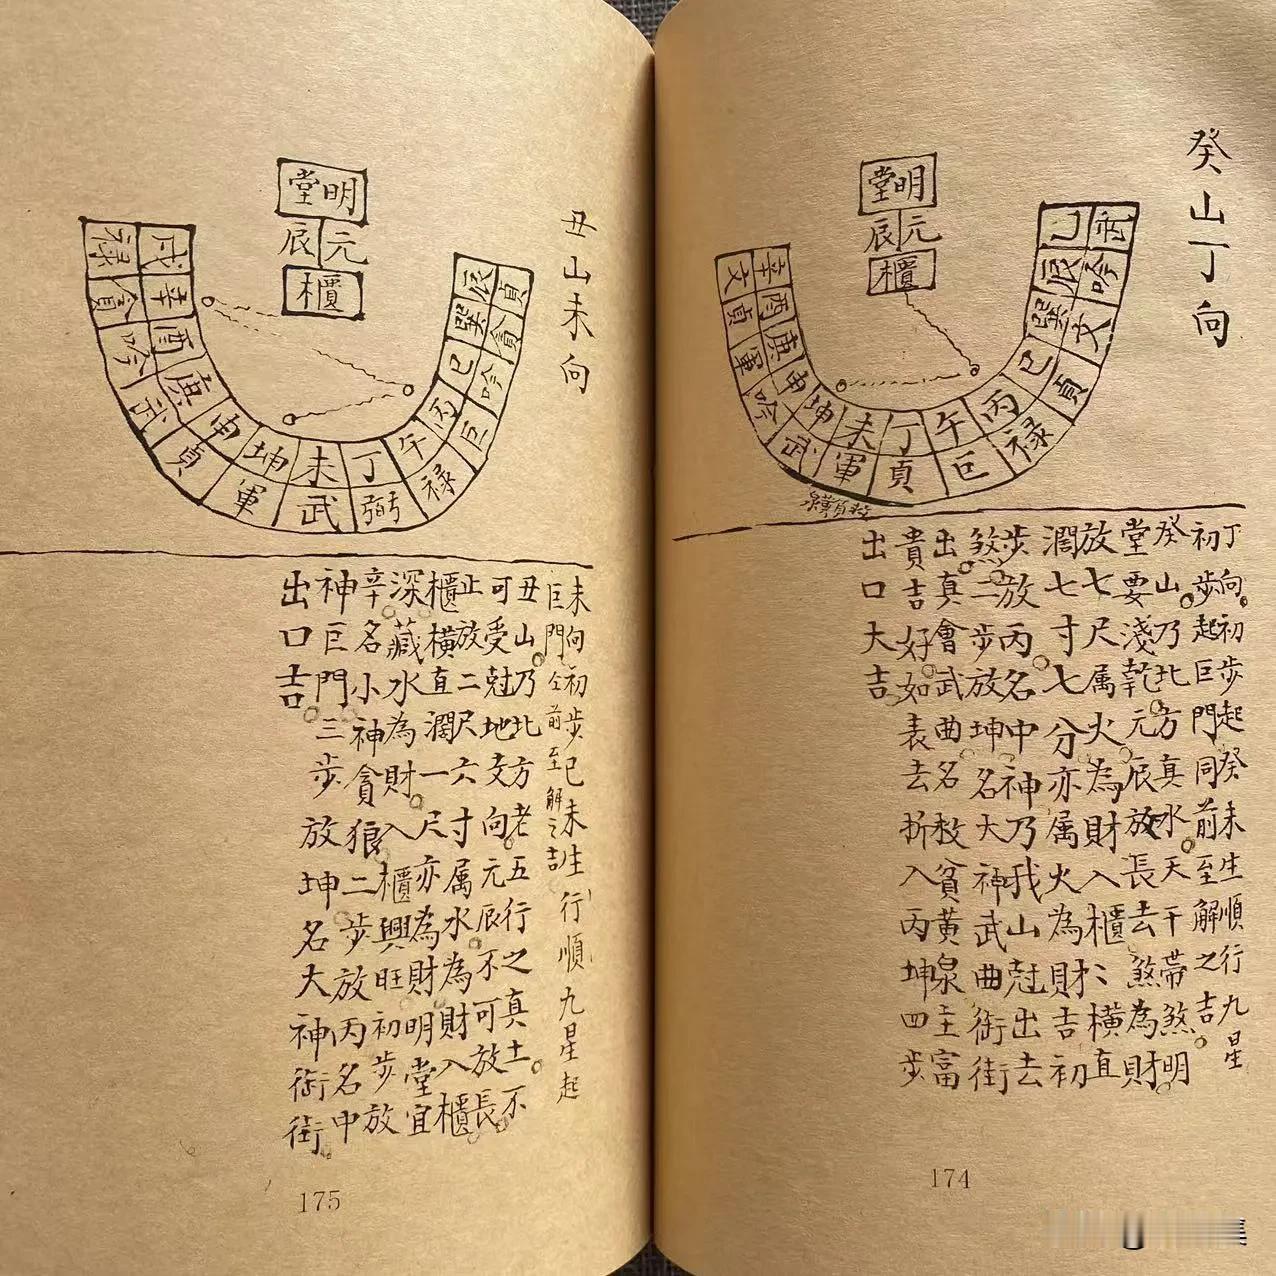 癸山丁向
明堂
元辰
櫃
辛酉庚申坤未丁午丙巳巽辰乙
文貞軍吟武軍貞巨禄貞文吟武
救貧黃泉
丁向初步起癸未生順行九星
初步起巨門同前至解之吉
癸山乃北方真水天干帶煞明
堂要淺乾元辰放長去煞為財
放七尺属火為財入櫃〻橫直
濶七寸七分亦属火為財吉初
步放丙名中神乃我山尅出去
煞二步放坤名大神武曲衙街
出真會武曲名救貧黃泉主富
貴吉好如表去折入丙坤四步
出口大吉
174
丑山未向
明堂
元辰
櫃
戌辛酉庚申坤未丁午丙巳巽辰
禄貪吟武貞軍武弼禄巨吟貪貞
未向初步己未生行順九星起
巨門仝前至解之吉
丑山乃北方老五行之真土不
可受尅地支向元辰不可放長
止放二尺六寸属水為財入櫃
櫃橫直濶一尺亦為財明堂宜
深藏水為財入櫃興旺初步放
辛名小神貪狼二步放丙名中
神巨門三步放坤名大神衙街
出口吉
175